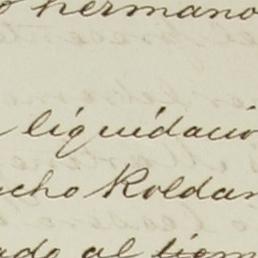 hermano
liquidació
cho Roldan
ado al tiem